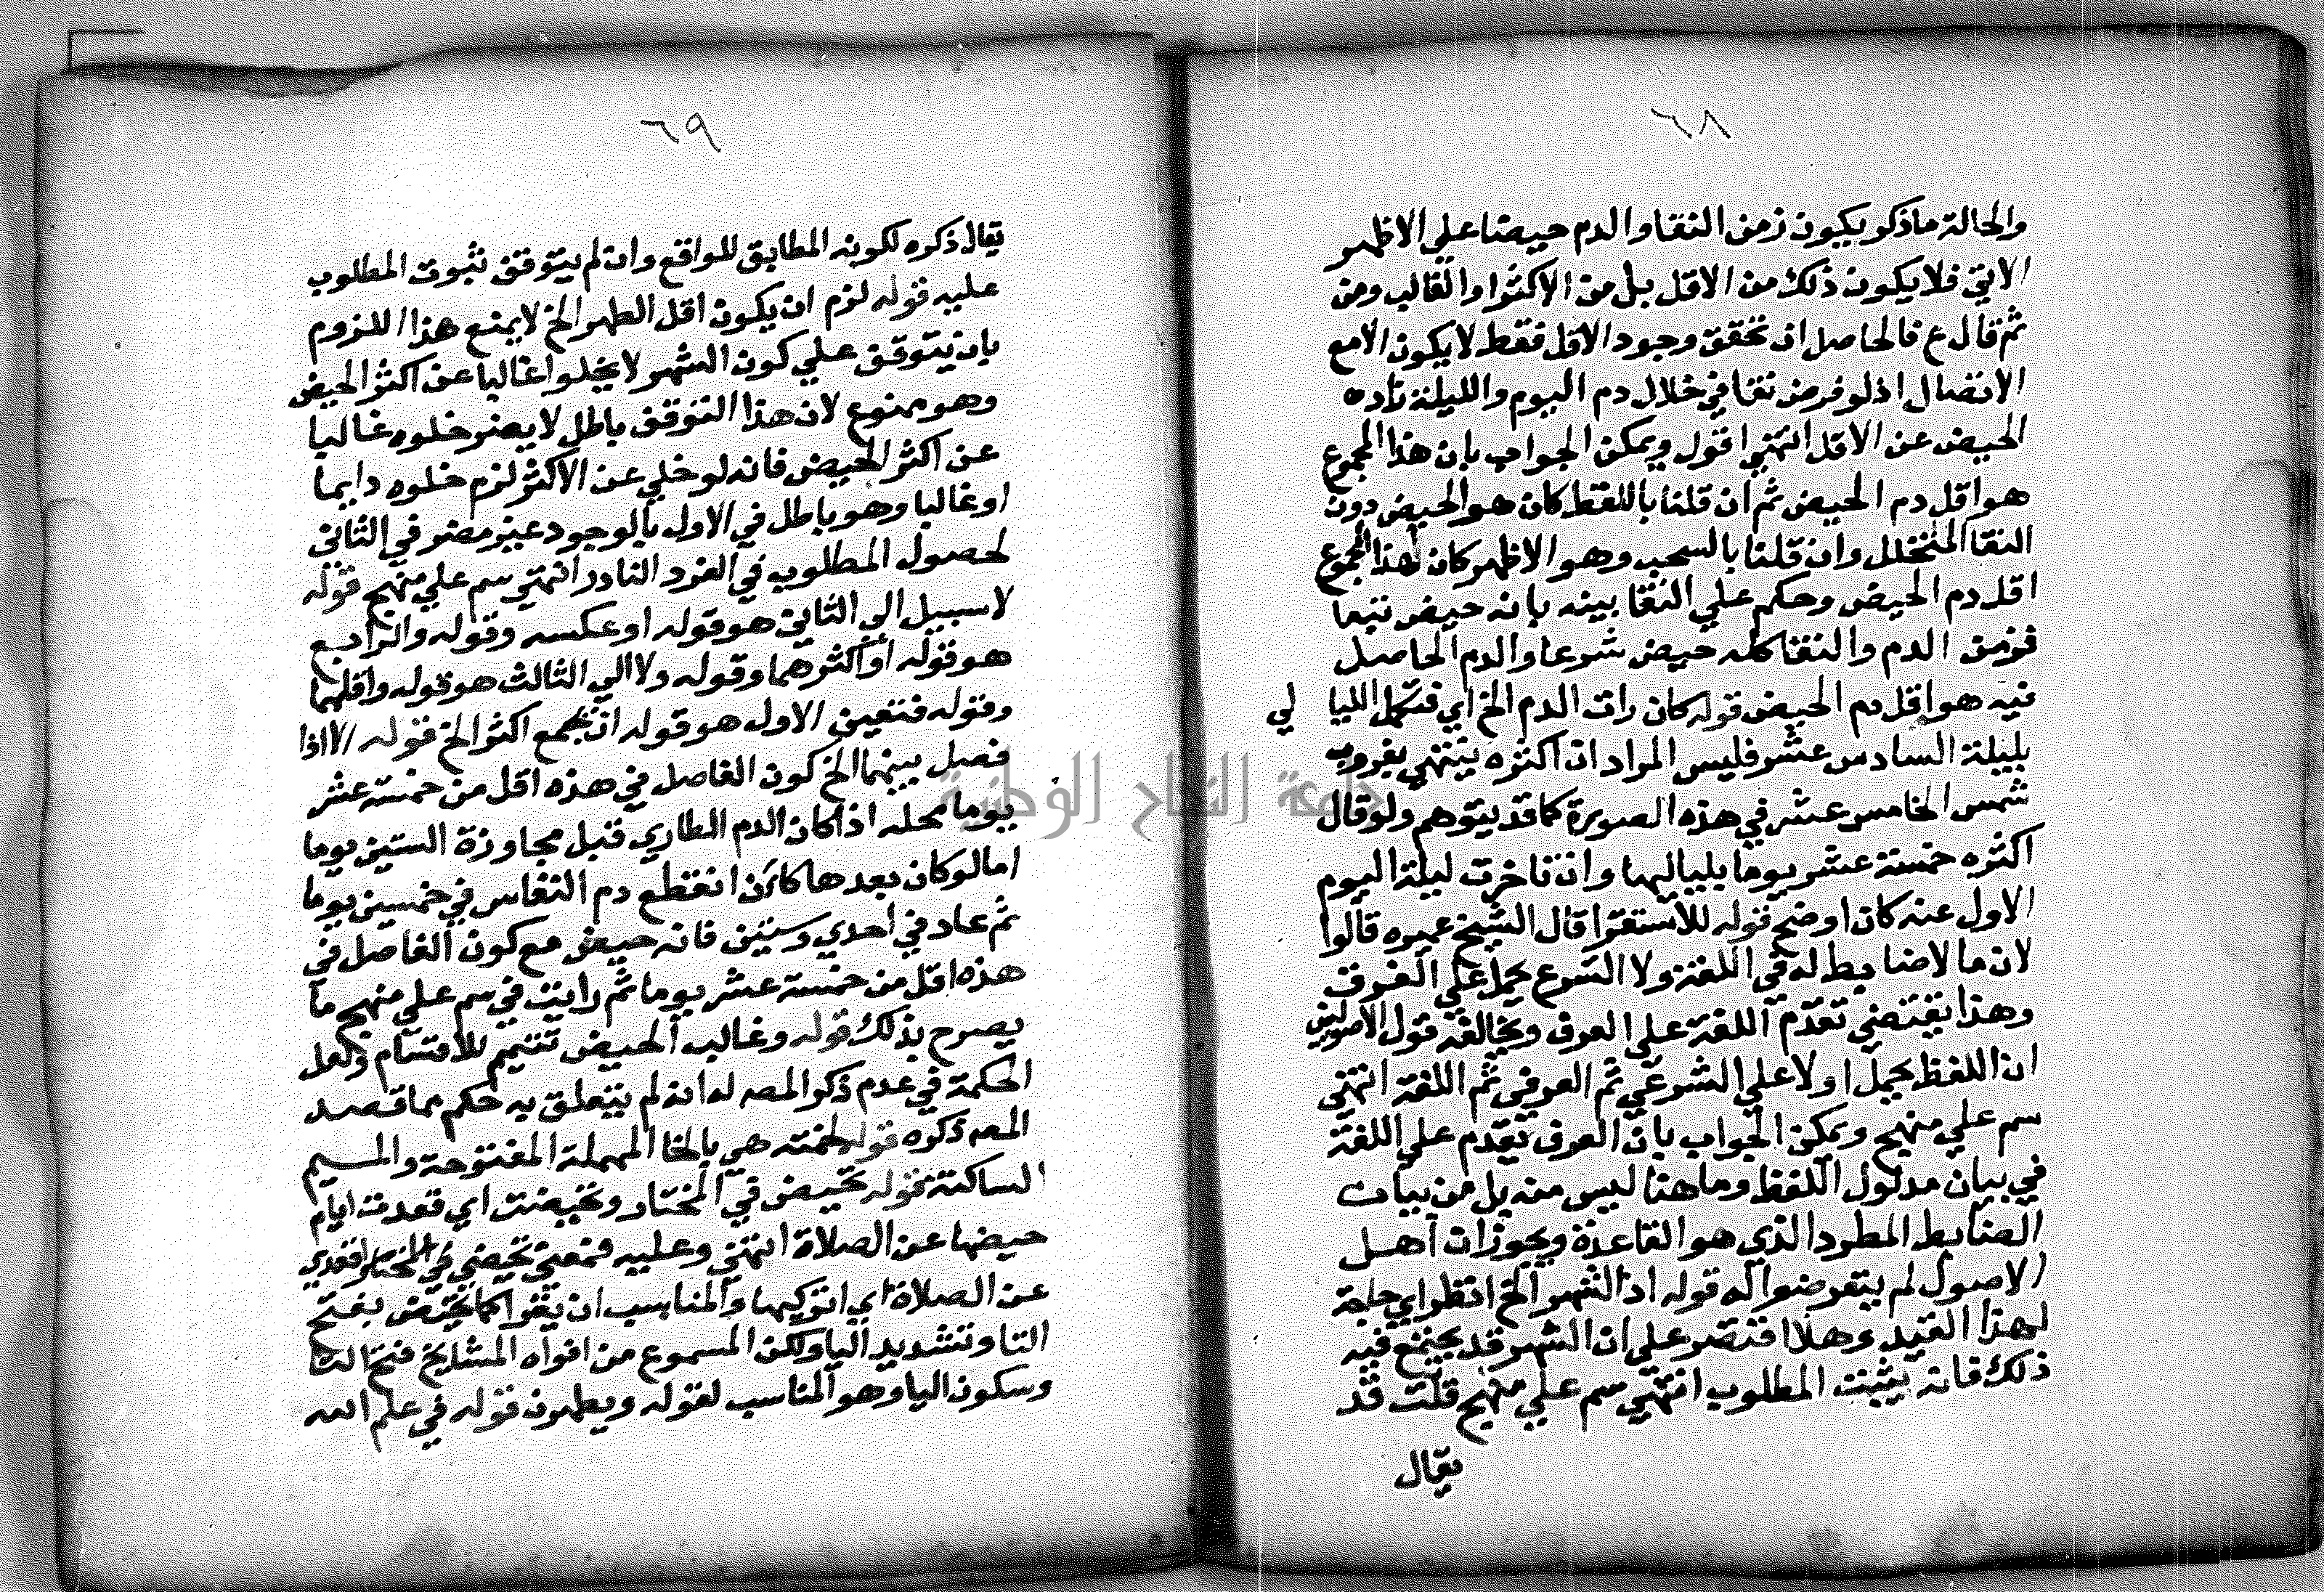 ٦٨
والحالة ماذكر يكون زمن النقا والدم حيضا علي الاظهر
الاتي فلا يكون ذلك من الاقل بل من الاكثر او الغالب ومن
ثم قال ع فالحاصل ان تحقق وجود الاقل فقط لا يكون الا مع
الاتصال اذ لو فرض نقا في خلال دم اليوم والليلة
الحيض عن الاقل انتهي اقول ويمكن الجواب بان هذا المجموع
هو اقل دم الحيض ثم ان قلنا باللقط كان هو الحيض دون
النقا المتخلل وان قلنا بالسحب وهو الاظهر كان هذا المجموع
اقل دم الحيض وحكم علي النقا بينه بانه حيض
فزمن الدم والنقا كله حيض شرعا والدم الحاصل
فيه هو اقل دم الحيض قوله كان رات الدم الخ اي فتكمل الليا لي
بليلة السادس عشر فليس المراد ان اكثره ينتهي بغروب
شمس الخامس عشر في هذه الصورة كما قد يتوهم ولو قال
اكثره خمسة عشر يوما بلياليها وان تاخرت ليلة اليوم
الاول عنه كان اوضح قوله للاستقرا قال الشيخ عميره قالوا
لان ما لا ضابط له في اللغة ولا الشرع يحمل علي العرف
وهذا يقتضي تقدم اللغة علي العرف ويخالفه قول الاصوليين
ان اللفظ يحمل اولا علي الشرعي ثم العرفي ثم اللغة انتهي
سم علي منهج ويمكن الجواب بان العرف تقدم علي اللغة
في بيان مدلول اللفظ وما هنا ليس منه بل من بيان
الضابط المطرد الذي هو القاعدة ويجوز ان اهل
الاصول لم يتعرضوا له قوله اذ الشهر الخ انظر اي حاجة
لهذا القيد وهلا اقتصر علي ان الشهر قد يجتمع فيه
ذلك فانه يثبت المطلوب انتهي سم علي منهج قلت قد
يقال
٦٩
يقال ذكره لكونه المطابق للواقع وان لم يتوقف ثبوت المطلوب
عليه قوله لزم ان يكون اقل الطهر الخ لا يمنع هذا اللزوم
بان يتوقف علي كون الشهر لا يخلوا غالبا عن اكثر الحيض
وهو ممنوع لان هذا التوقف باطل لا يضر خلوه غالبا
عن اكثر الحيض فانه لو خلي عن الاكثر لزم خلوه دايما
او غالبا وهو باطل في الاول بالوجود غير مضر في الثاني
لحصول المطلوب في الفرد النادر انتهي سم علي منهج قوله
لا سبيل الي الثاني هو قوله او عكسه وقوله والرابع
هو قوله او اكثرهما وقوله ولا الي الثالث هو قوله واقلهما
وقوله فتعين الاول هو قوله ان تجمع اكثر الخ قوله الا اذا
فصل بينهما الخ كون الفاصل في هذه اقل من خمسة عشر
يوما محله اذا كان الدم الطاري قبل مجاوزة الستين يوما
اما لو كان بعدها كان انقطع دم النفاس في خمسين يوما
ثم عاد في احدي وستين فانه حيض مع كون الفاصل في
هذه اقل من خمسة عشر يوما ثم رايت في سم علي منهج ما
يصرح بذلك قوله وغالب الحيض تتميم للاقسام ولعل
الحكمة في عدم ذكر المصه له انه لم يتعلق به حكم مما قصد
المصه ذكره قوله لحمنة هي بالحا المهملة المفتوحة والميم
الساكنة قوله تحيض في المختار وتحيضت اي قعدت ايام
حيضها عن الصلاة انتهي وعليه فمعني تحيضي في المختار اقعدي
عن الصلاة اي اتركيها والمناسب ان تقرا كما تحيض بفتح
التا وتشديد اليا ولكن المسموع من افواه المشايخ فتح التا
وسكون اليا وهو المناسب لقوله ويطهرن قوله في علم الله
جامعة النجاح الوطنية